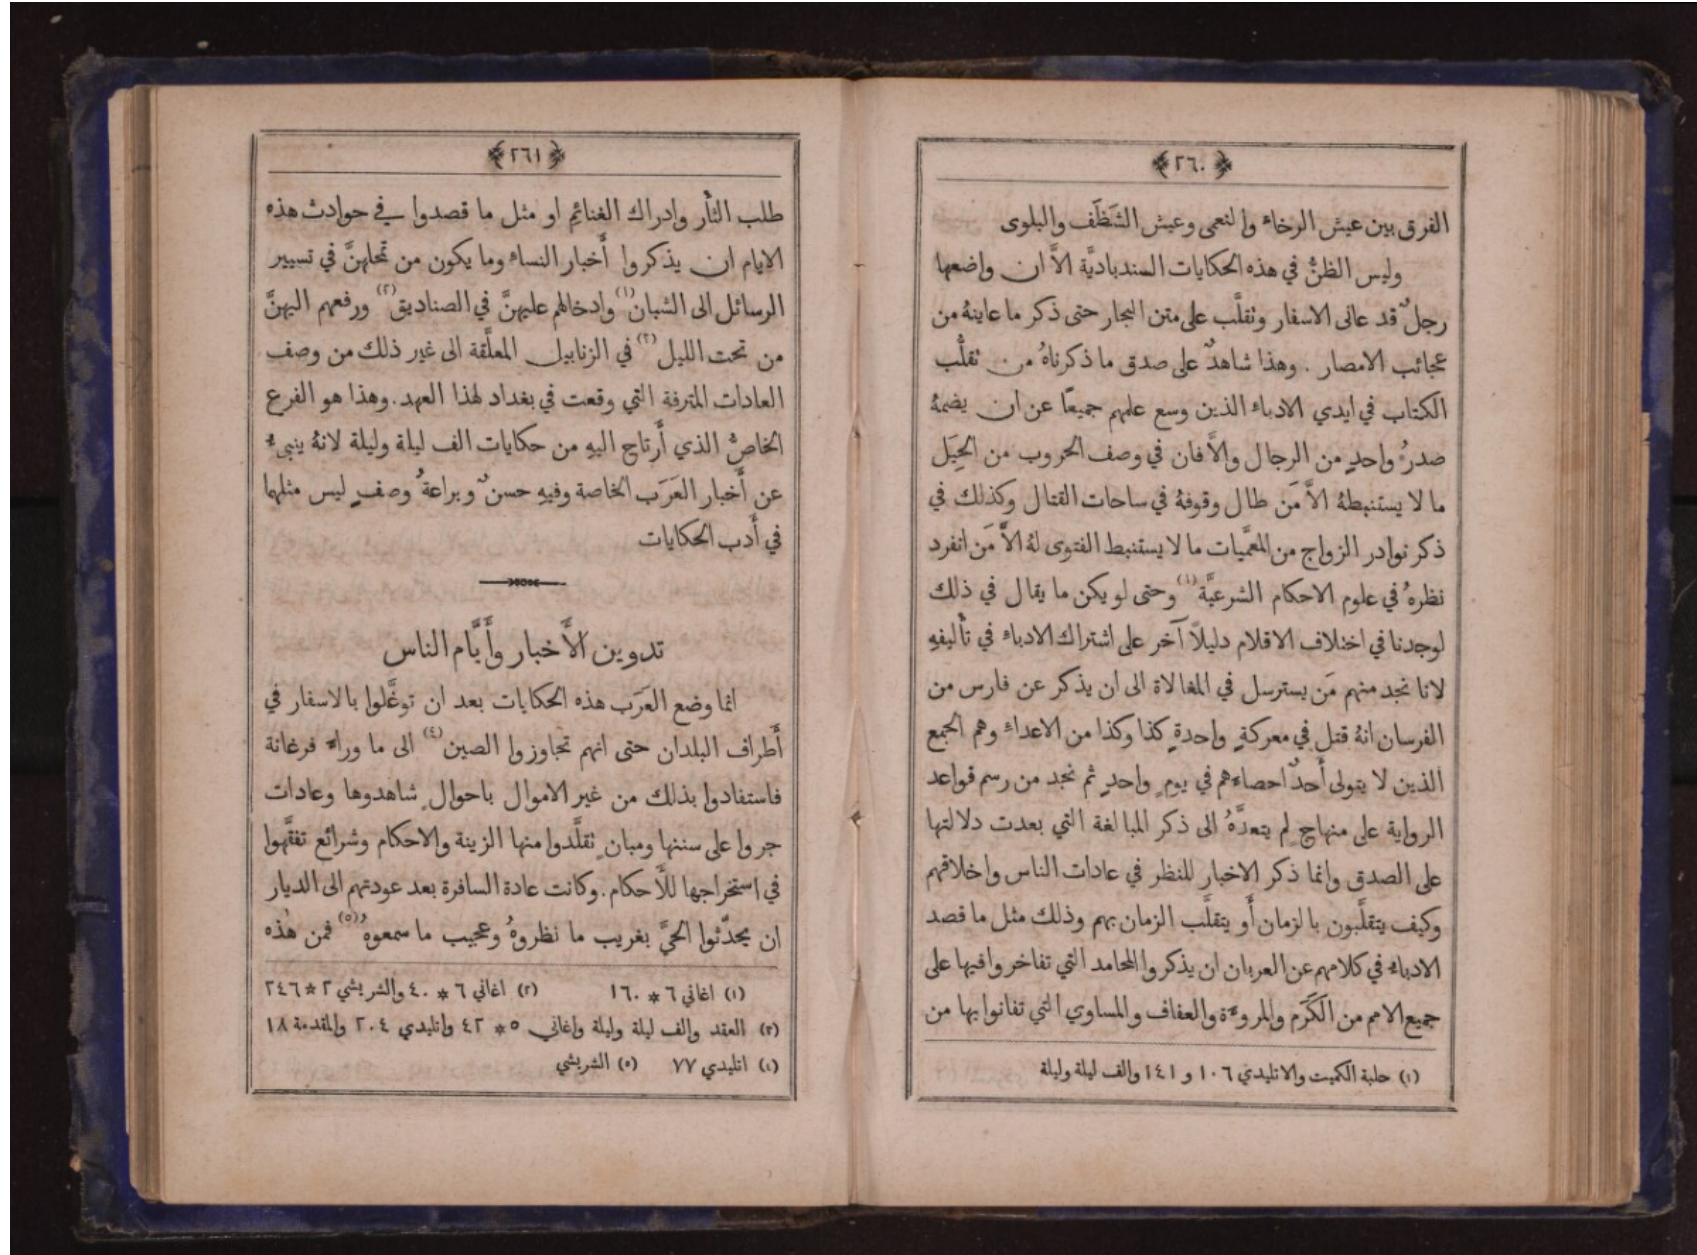 ﴿٢٦٠﴾
الفرق بين عيش الرخاء والنعمى وعيش الشَظَف والبلوى
وليس الظنُّ في هذه الحكايات السندباديَّة الاَّ ان واضعها
رجلٌ قد عانى الاسفار وتقلَّب على متن البحار حتى ذكر ما عاينهُ من
عجائب الامصار . وهذا شاهدٌ على صدق ما ذكرناهُ من تقلُّب
الكتاب في ايدي الادباء الذين وسع علمهم جميعًا عن ان يضمهُ
صدرُ واحدٍ من الرجال والاَّ فان في وصف الحروب من الحِيَل
ما لا يستنبطهُ الاَّ مَن طال وقوفهُ في ساحات القتال وكذلك في
ذكر نوادر الزواج من المعمَّيات ما لا يستنبط الفتوى لهُ الاَّ مَن انفرد
نظرهُ في علوم الاحكام الشرعيَّة (١) وحتى لو يكن ما يقال في ذلك
لوجدنا في اختلاف الاقلام دليلاً آخر على اشتراك الادباء في تأليفهِ
لانا نجد منهم مَن يسترسل في المغالاة الى ان يذكر عن فارس من
الفرسان انهُ قتل في معركةٍ واحدةٍ كذا وكذا من الاعداء وهم الجمع
الذين لا يتولى أحدٌ احصاءهم في يومٍ واحدٍ ثم نجد من رسم قواعد
الرواية على منهاجٍ لم يتعدَّهُ الى ذكر المبالغة التي بعدت دلالتها
على الصدق وانما ذكر الاخبار للنظر في عادات الناس واخلاقهم
وكيف يتقلَّبون بالزمان أَو يتقلَّب الزمان بهم وذلك مثل ما قصد
الادباء في كلامهم عن العربان ان يذكروا المحامد التي تفاخروا فيها على
جميع الامم من الكَرَم والمروءة والعفاف والمساوي التي تفانوا بها من
(١) حلبة الكميت والاتليدي ١٠٦ و ١٤١ والف ليلة وليلة
﴿٢٦١﴾
طلب الثأر وادراك الغنائم او مثل ما قصدوا في حوادث هذه
الايام ان يذكروا أَخبار النساء وما يكون من تمحلهنَّ في تسيير
الرسائل الى الشبان (١) وادخالهم عليهنَّ في الصناديق (٢) ورفعهم اليهنَّ
من تحت الليل (٣) في الزنابيل المعلَّقة الى غير ذلك من وصف
العادات المترفة التي وقعت في بغداد لهذا العهد . وهذا هو الفرع
الخاصُّ الذي أَرتاح اليهِ من حكايات الف ليلة وليلة لانهُ ينبىء
عن أَخبار العَرَب الخاصة وفيهِ حسنٌ وبراعةُ وصفٍ ليس مثلهما
في أَدب الحكايات
تدوين الأَخبار وأَيَّام الناس
انما وضع العَرَب هذه الحكايات بعد ان توغَّلوا بالاسفار في
أَطراف البلدان حتى انهم تجاوزوا الصين (٤) الى ما وراء فرغانة
فاستفادوا بذلك من غير الاموال باحوالٍ شاهدوها وعادات
جروا على سننها ومبانٍ نقلَّدوا منها الزينة والاحكام وشرائع تفقَّهوا
في استخراجها للأَحكام . وكانت عادة السافرة بعد عودتهم الى الديار
ان يحدّثوا الحيَّ بغريب ما نظروهُ وعجيب ما سمعوهُ (٥) فمن هٰذه
(١) اغاني ٦ * ١٦٠ (٢) اغاني ٦ * ٤٠ والشريشي ٢ * ٢٤٦
(٣) العقد والف ليلة وليلة واغاني ٥ * ٤٢ واتليدي ٢٠٤ والمقدمة ١٨
(٤) اتليدي ٧٧ (٥) الشريشي